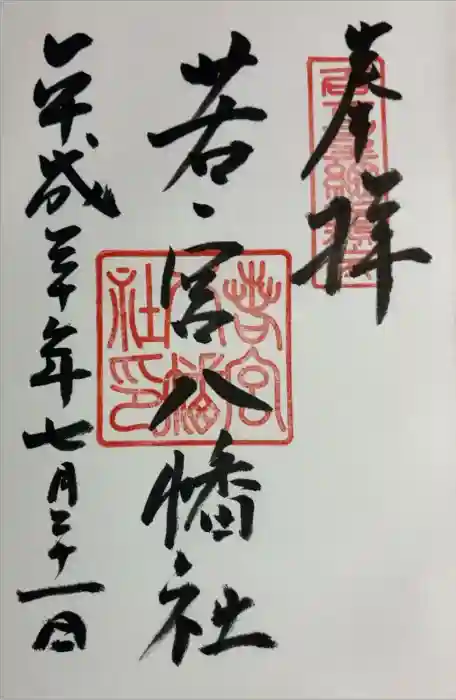 奉拝
若、宮八幡社
平成三十年七月二十一日
若宮
八幡
社印